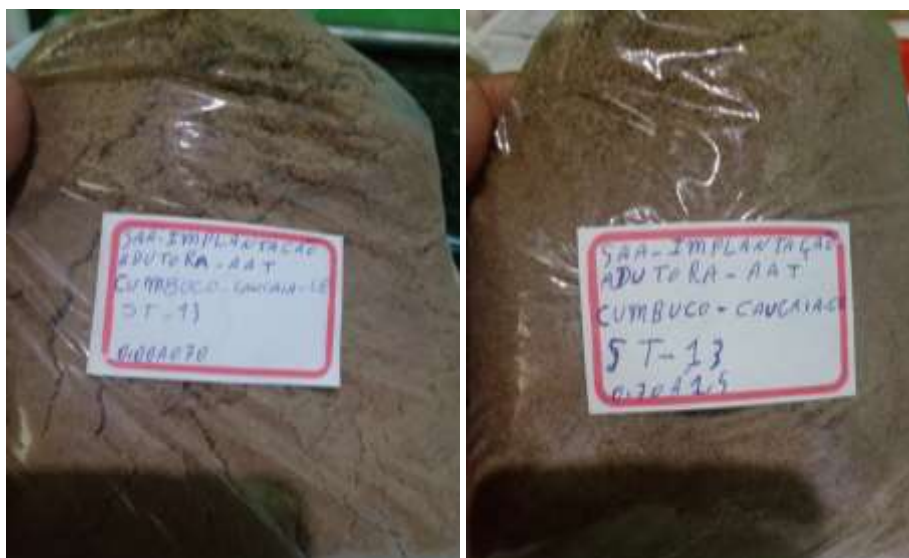 SAA-IMPLANTAÇÃO
ADUTORA-AAT
CUMBUCO-CAUCAIA-CE
ST-13
0.00A070
SAA-IMPLANTAÇÃO
ADUTORA-AAT
CUMBUCO-CAUCAIACE
ST-13
0.70A1.5